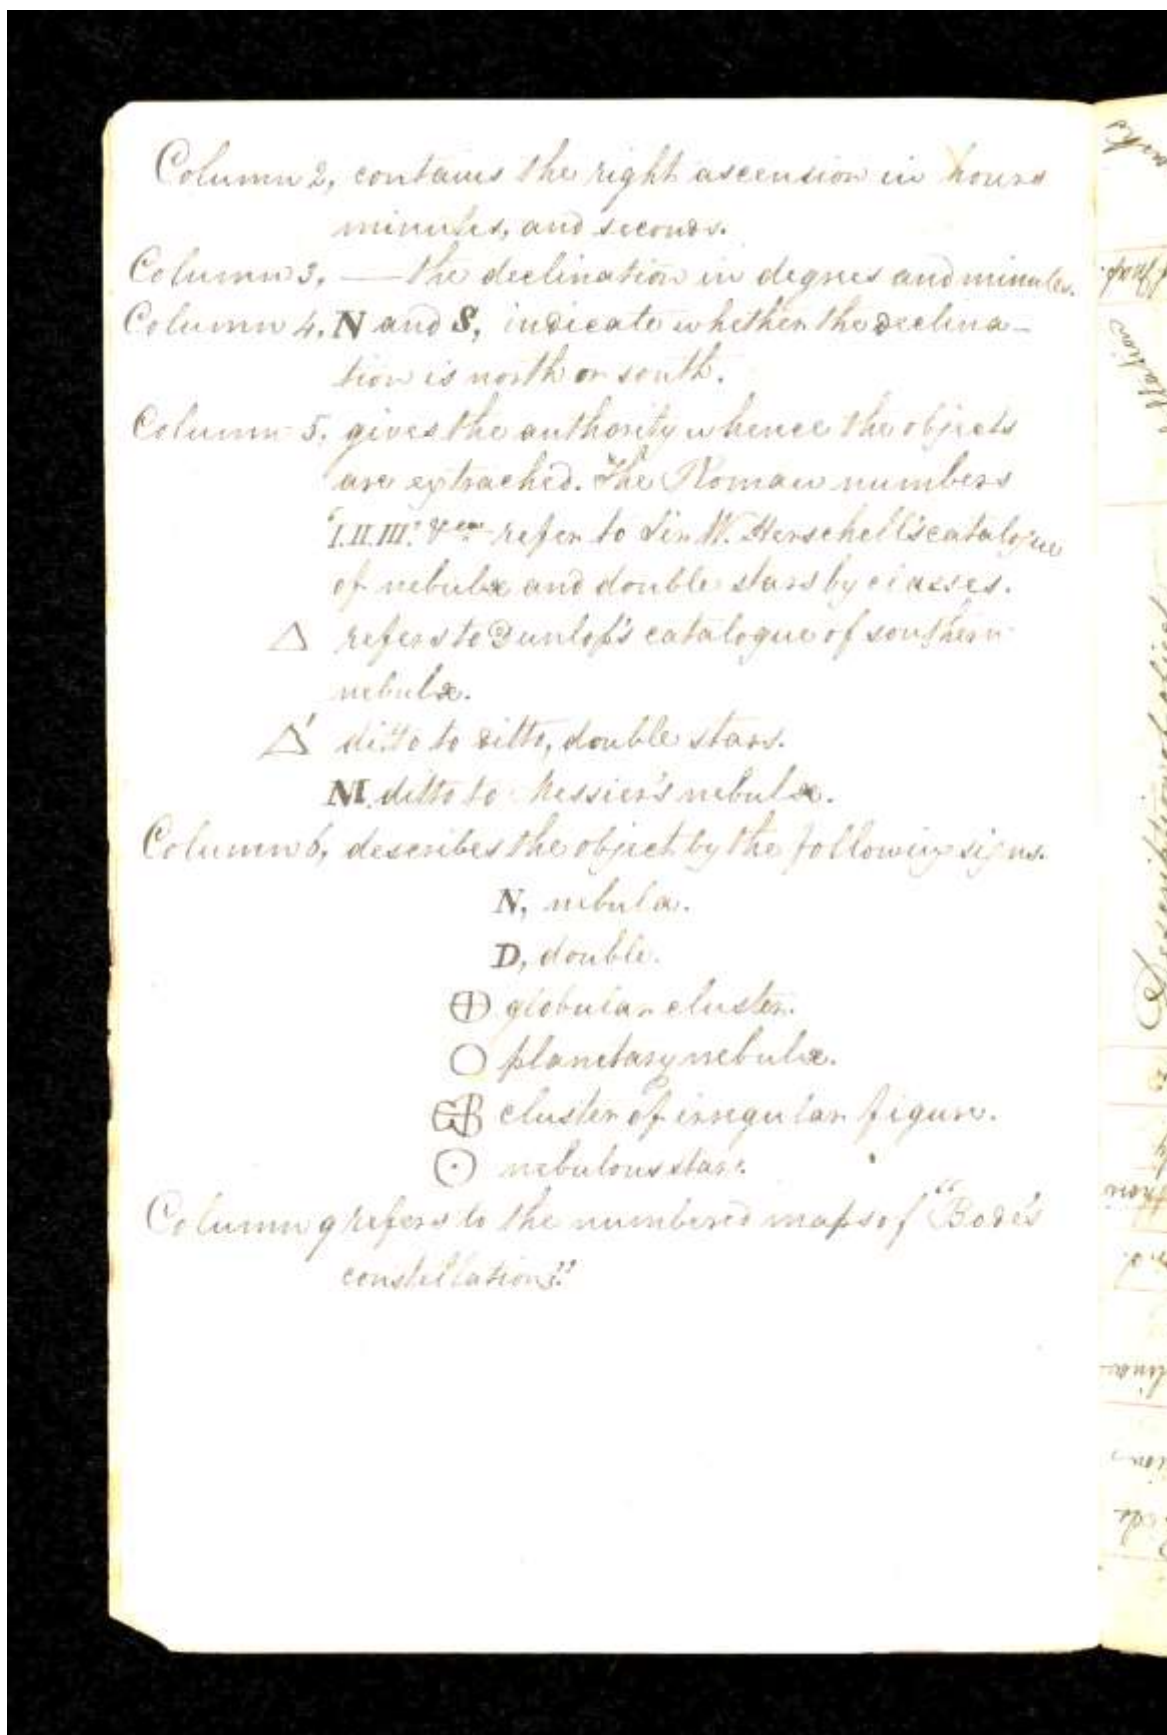 Column 2, contains the right ascension in hours
minutes, and seconds.
Column 3, — the declination in degrees and minutes.
Column 4. N and S, indicate whether the declina-
tion is north or south.
Column 5, gives the authority whence the objects
are extracted. "The Roman numbers
"I.II.III." &c. refer to Sir W. Herschell's catalogue
of nebulæ and double stars by classes.
△ refers to Dunlop's catalogue of southern
nebulæ.
△' ditto to ditto, double stars.
M. ditto to Messier's nebulæ.
Column 6, describes the object by the following signs.
N, nebula.
D, double.
⊕ globular cluster.
○ planetary nebulæ.
cluster of irregular figure.
⊙ nebulous star.
Column 9 refers to the numbered maps of "Bode's
constellations."
Description of object